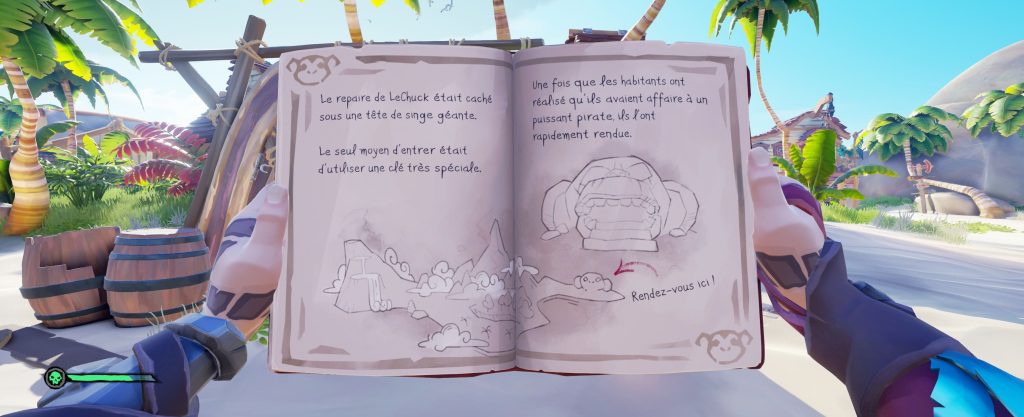 Le repaire de LeChuck était caché
sous une tête de singe géante.
Le seul moyen d'entrer était
d'utiliser une clé très spéciale.
Une fois que les habitants ont
réalisé qu'ils avaient affaire à un
puissant pirate, ils l'ont
rapidement rendue.
Rendez-vous ici !